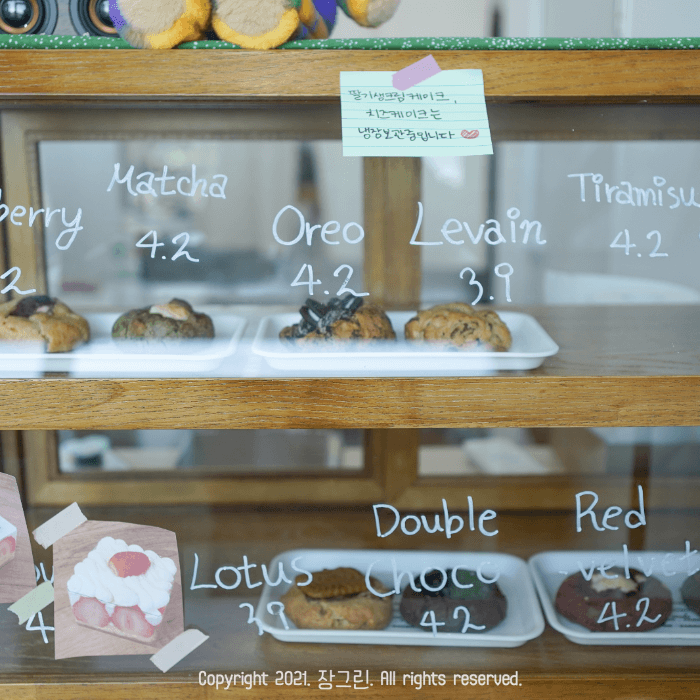 딸기생크림케이크,
치즈케이크는
냉장보관중입니다
berry
Matcha
4.2
Oreo
4.2
Levain
3.9
Tiramisu
4.2
2
Lotus
3.9
Double
Choco
4.2
Red
velvet
4.2
4
Copyright 2021. 잠그린. All rights reserved.